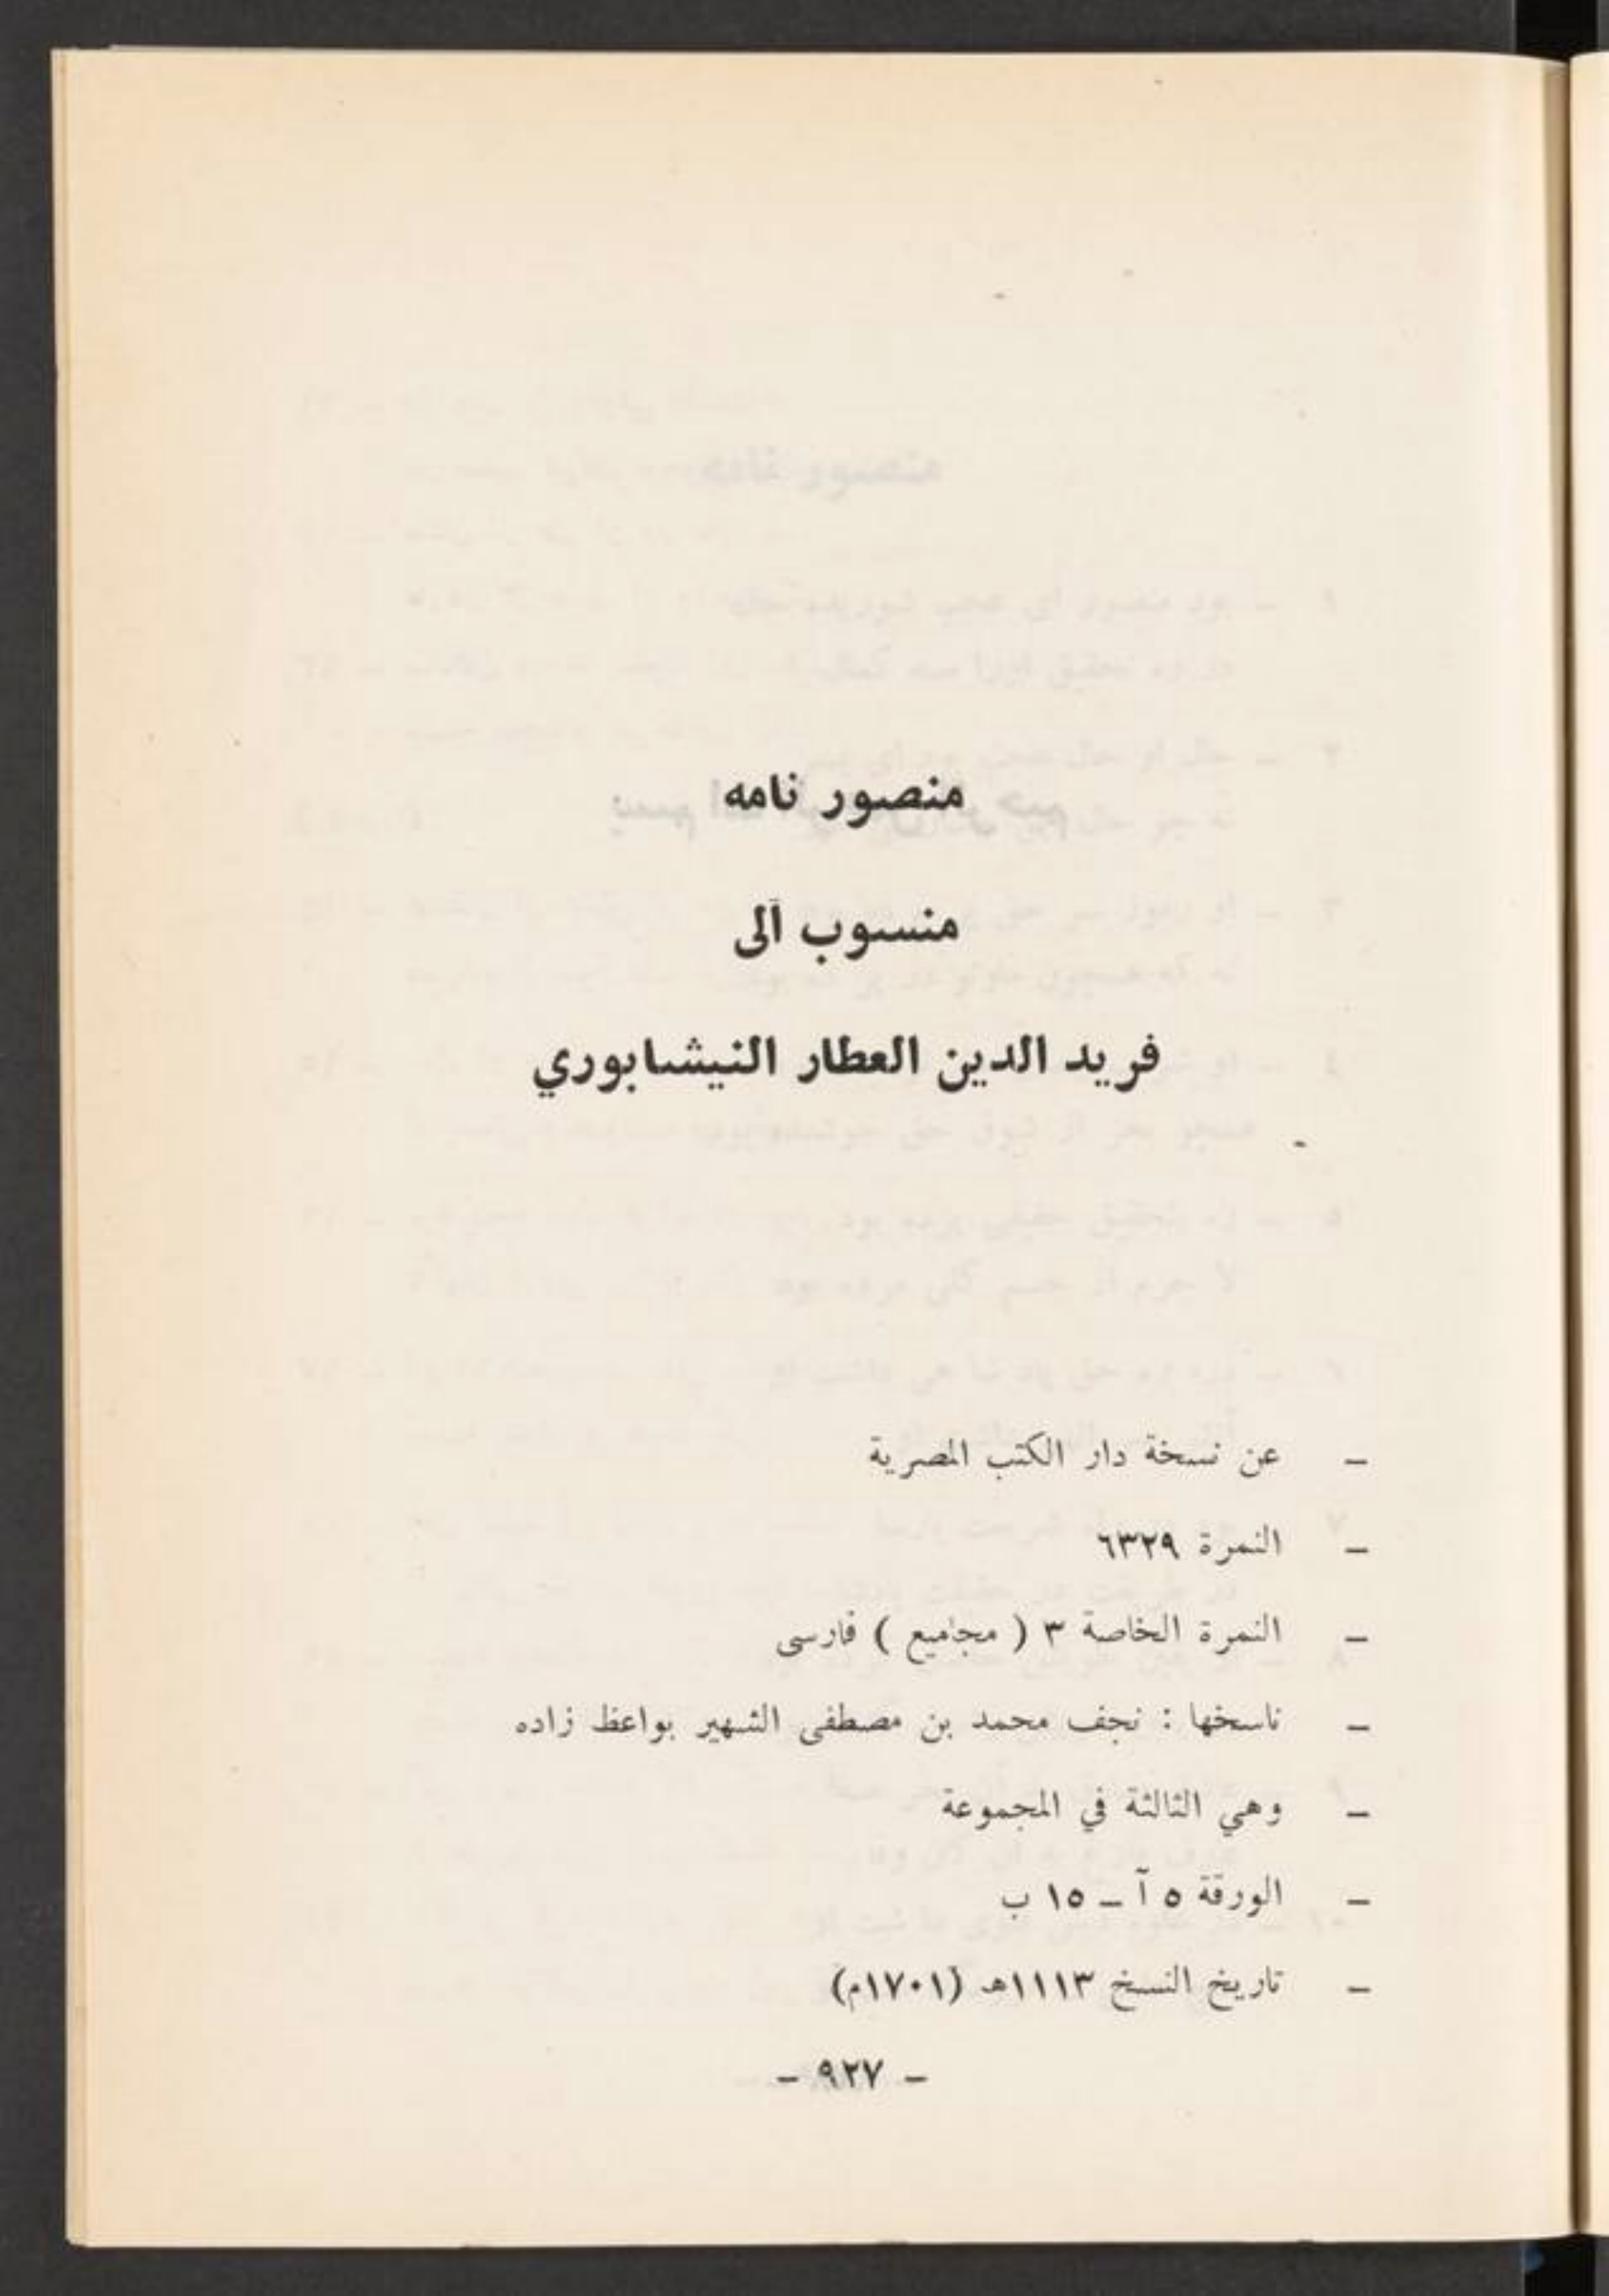 منصور نامه
منسوب آلى
فريد الدين العطار النيشابوري
– عن نسخة دار الكتب المصرية
– النمرة ٦٣٢٩
– النمرة الخاصة ٣ ( مجاميع ) فارسى
– ناسخها : نجف محمد بن مصطفى الشهير بواعظ زاده
– وهي الثالثة في المجموعة
– الورقة ٥ آ – ١٥ ب
– تاريخ النسخ ١١١٣هـ (١٧٠١م)
– ٩٢٧ –